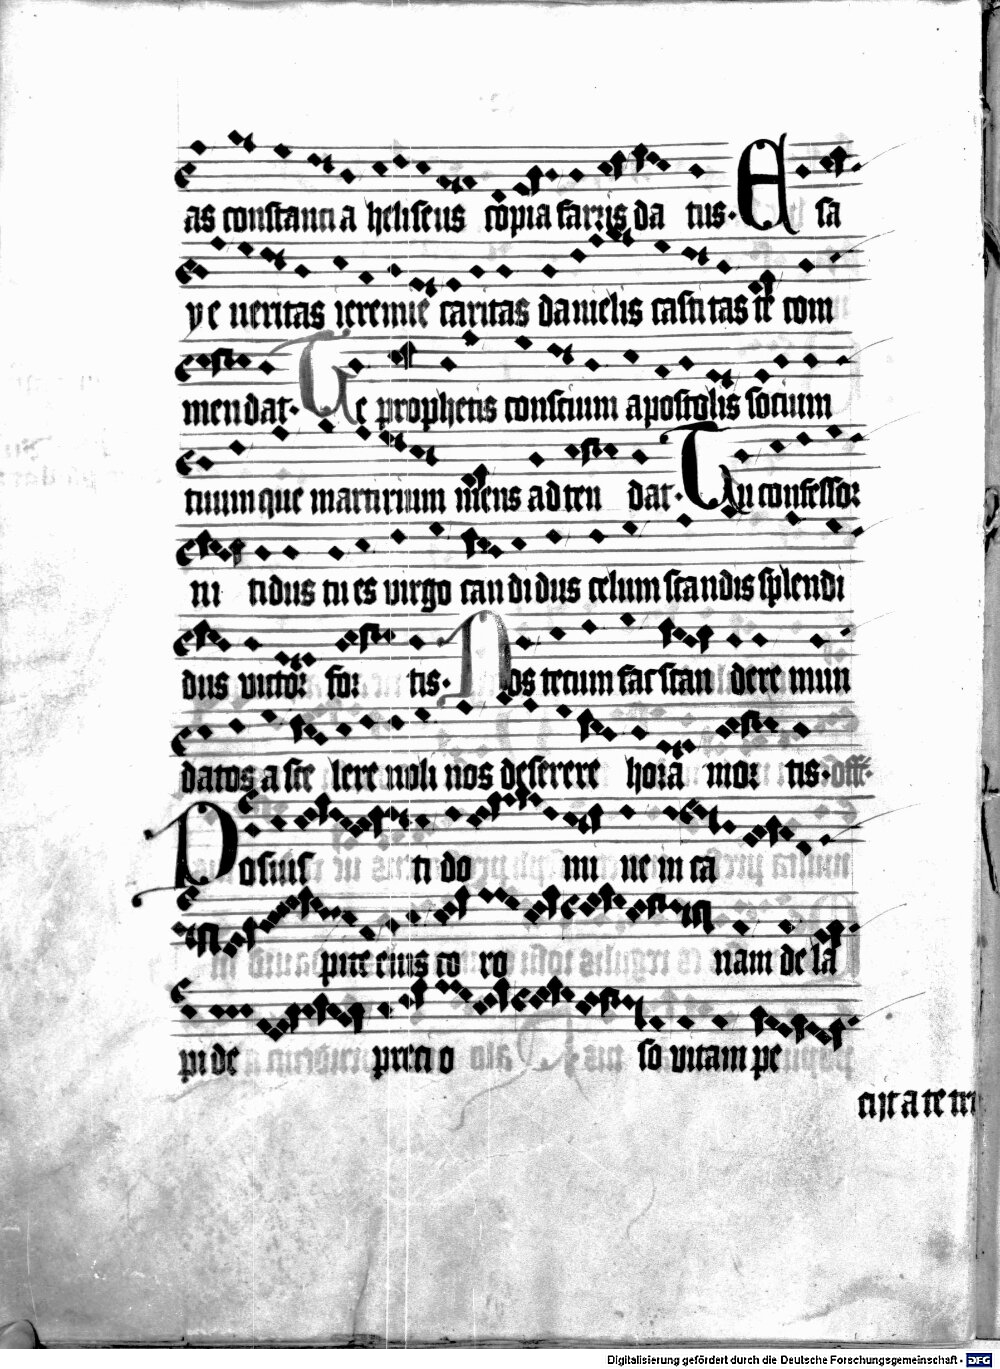 as constancia heliseus copia farris da tus. Esa
ye ueritas ieremie caritas danielis castitas te com
mendat. Te prophetis conscium apostolis socium
tuumque martirium mens adten dat. Tu confessor
ni tidus tu es virgo candidus celum scandis splendi
dus victor for tis. Nos tecum fac scan dere mun
datos a sce lere noli nos deserere hora mor tis. offe.
Posuis ti do mi ne in ca
pite eius co ro nam de la
pi de precio so vitam pe
Digitalisierung gefördert durch die Deutsche Forschungsgemeinschaft - DFG